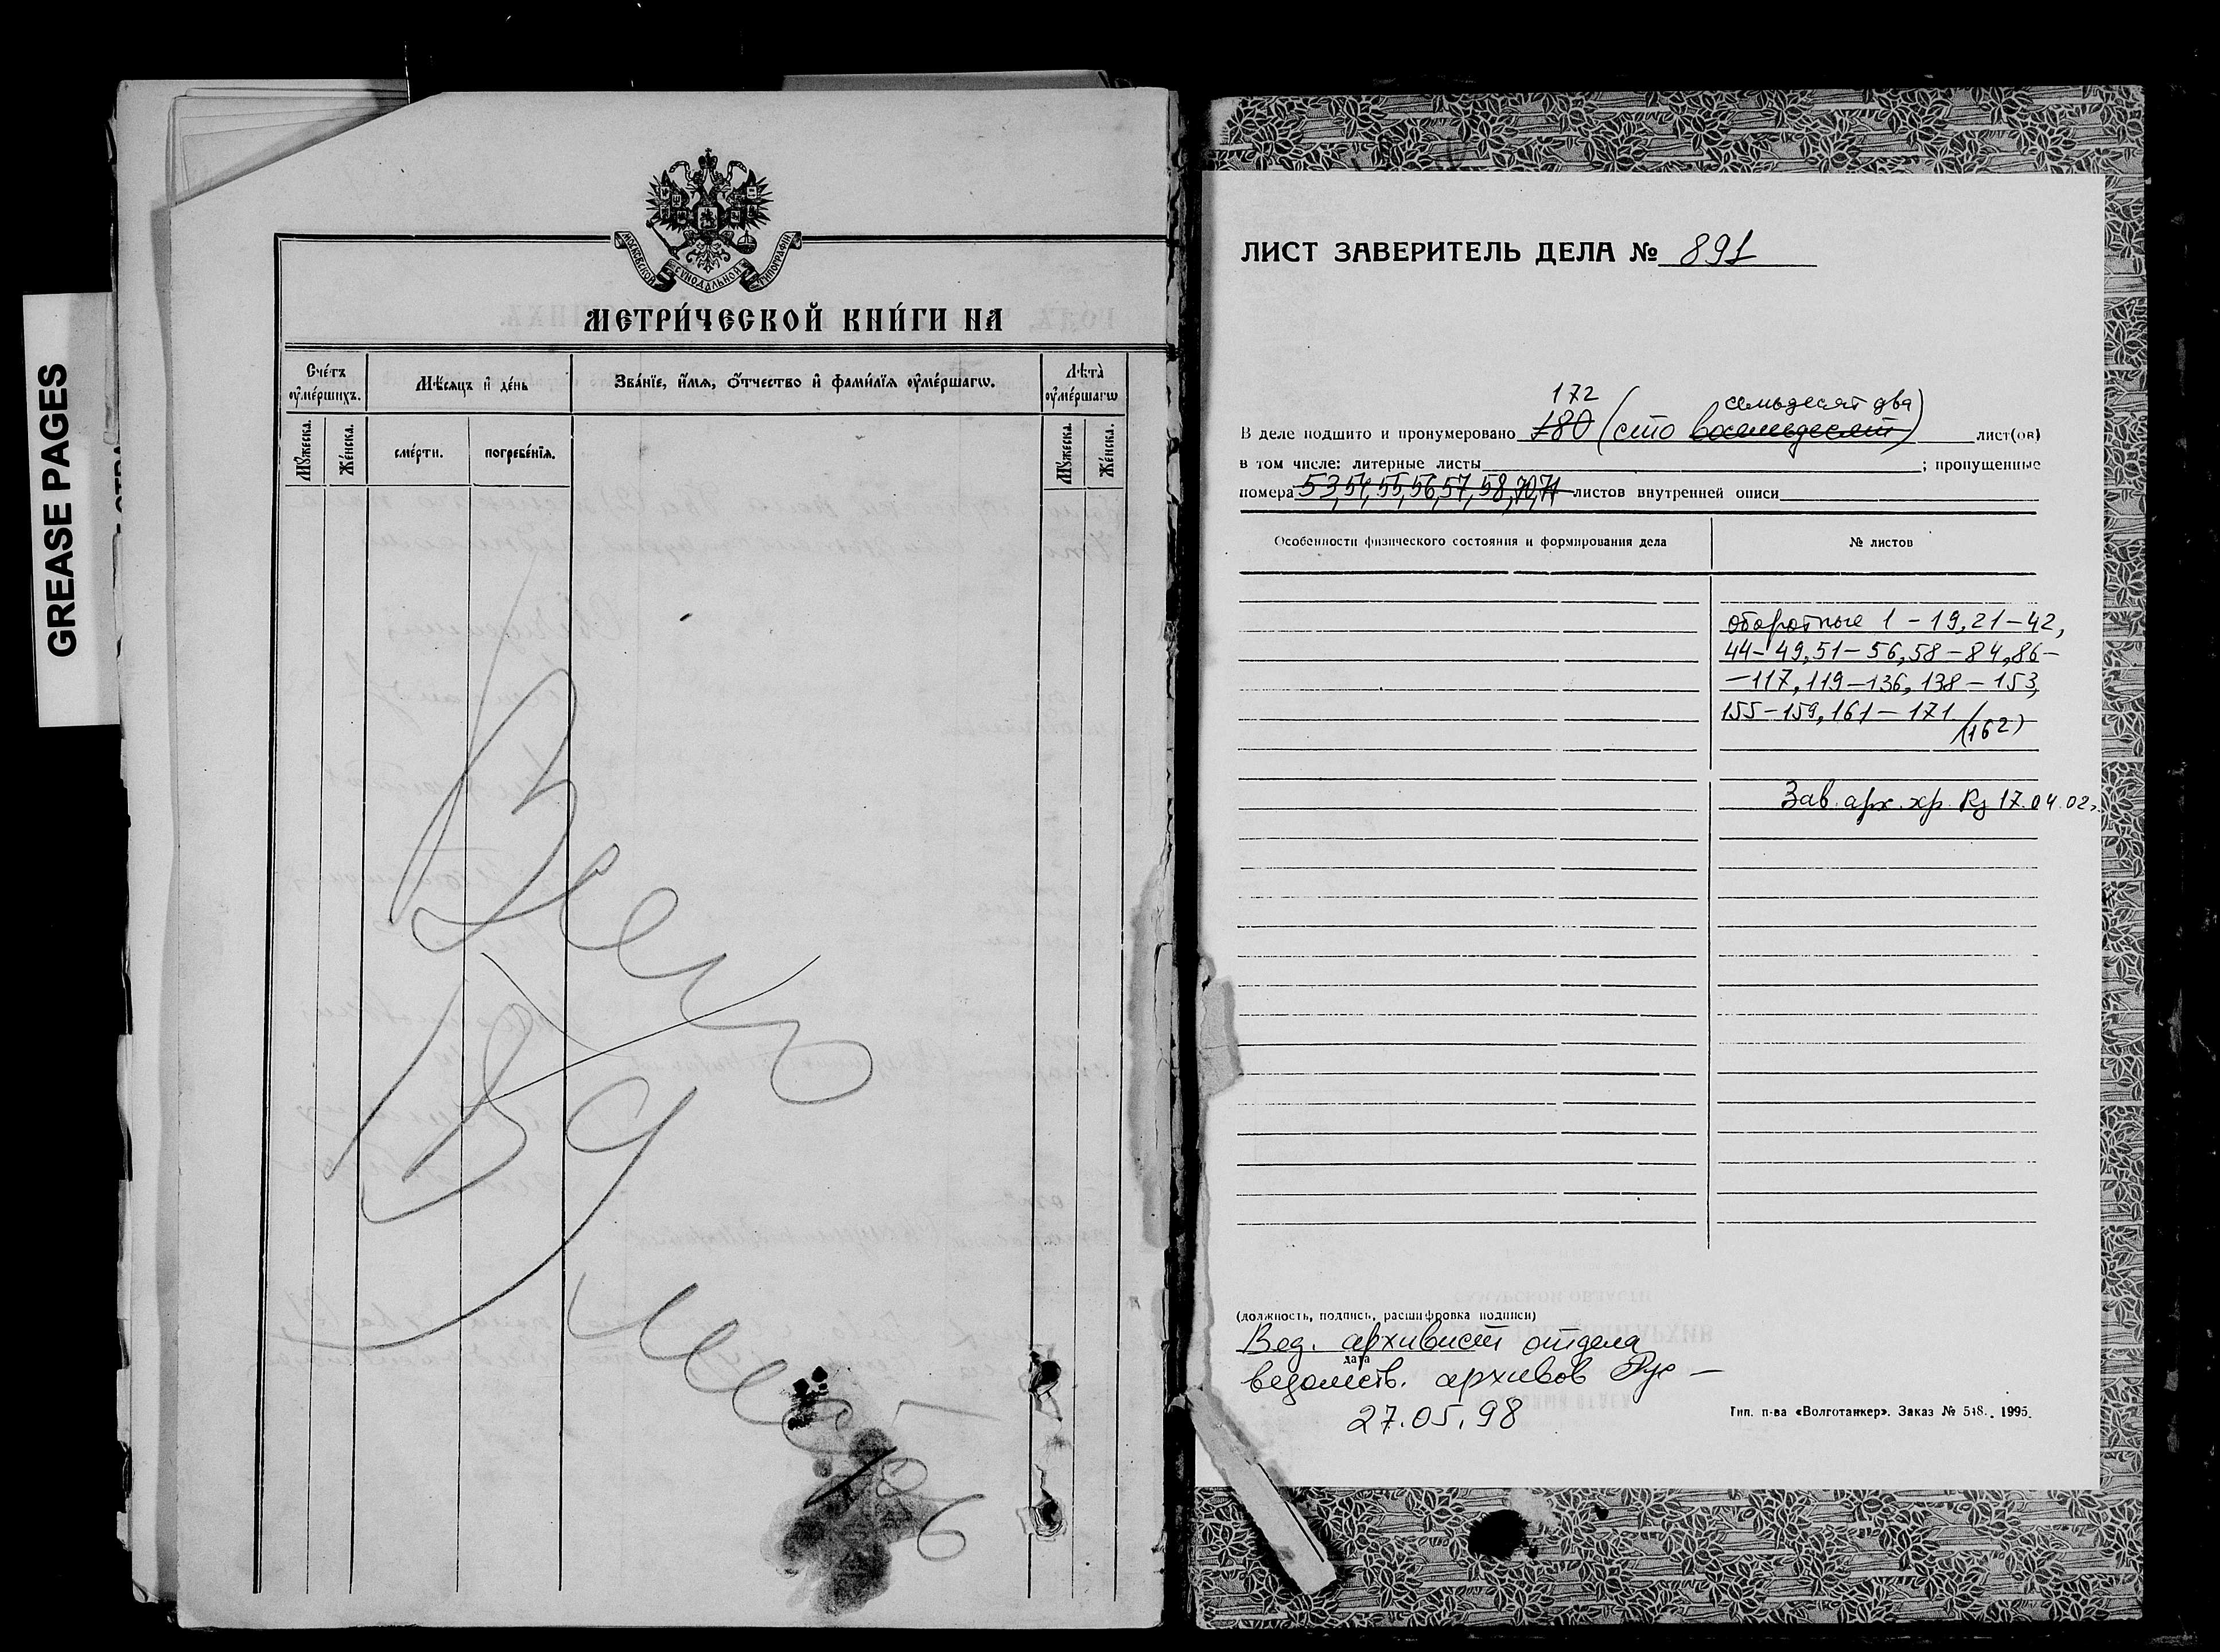 GREASE PAGES
МОСКОВСКОЙ СѴНОДАЛЬНОЙ ТИПОГРАФІИ
МЕТРИ́ЧЕСКОЙ КНИ́ГИ НА
Сче́тъ ᲂу҆ме́ршихъ.
Мѣ́сяцъ и҆ де́нь
Зва́нїе, и҆́мѧ, ѻ҆́тчество и҆ фами́лїѧ ᲂу҆ме́ршагѡ.
Лѣта̀ ᲂу҆ме́ршагѡ
Мꙋ́жеска.
Же́нска.
сме́рти.
погребе́нїѧ.
Мꙋ́жеска.
Же́нска.
Всего
ЛИСТ ЗАВЕРИТЕЛЬ ДЕЛА № 891
172
семьдесят два
В деле подшито и пронумеровано 180 (сто восемьдесят) лист(ов)
в том числе: литерные листы ; пропущенные
номера 53,54,55,56,57,58,70,71 листов внутренней описи
Особенности физического состояния и формирования дела
№ листов
оборотные 1 – 19, 21 – 42,
44 – 49, 51 – 56, 58 – 84, 86 –
– 117, 119 – 136, 138 – 153,
155 – 159, 161 – 171
(162)
Зав. арх. хр. 17.04.02г.
(должность, подпись, расшифровка подписи)
Вед. архивист отдела
дата
ведомств. архивов
27.05.98
Тип. п-ва «Волготанкер». Заказ № 518. 1995.